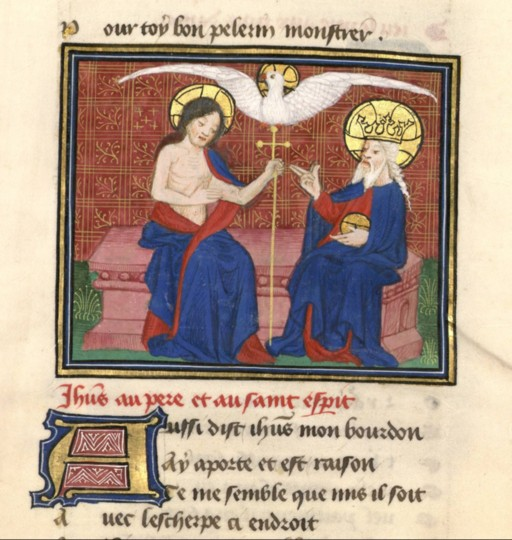 Pour toy bon pelerin monstrer.
Ihūs au pere et au saint esp̄it
Aussi dist ihūs mon bourdon
Ay aporte et est raison
Ce me semble que mis il soit
Auec lescherpe ci endroit